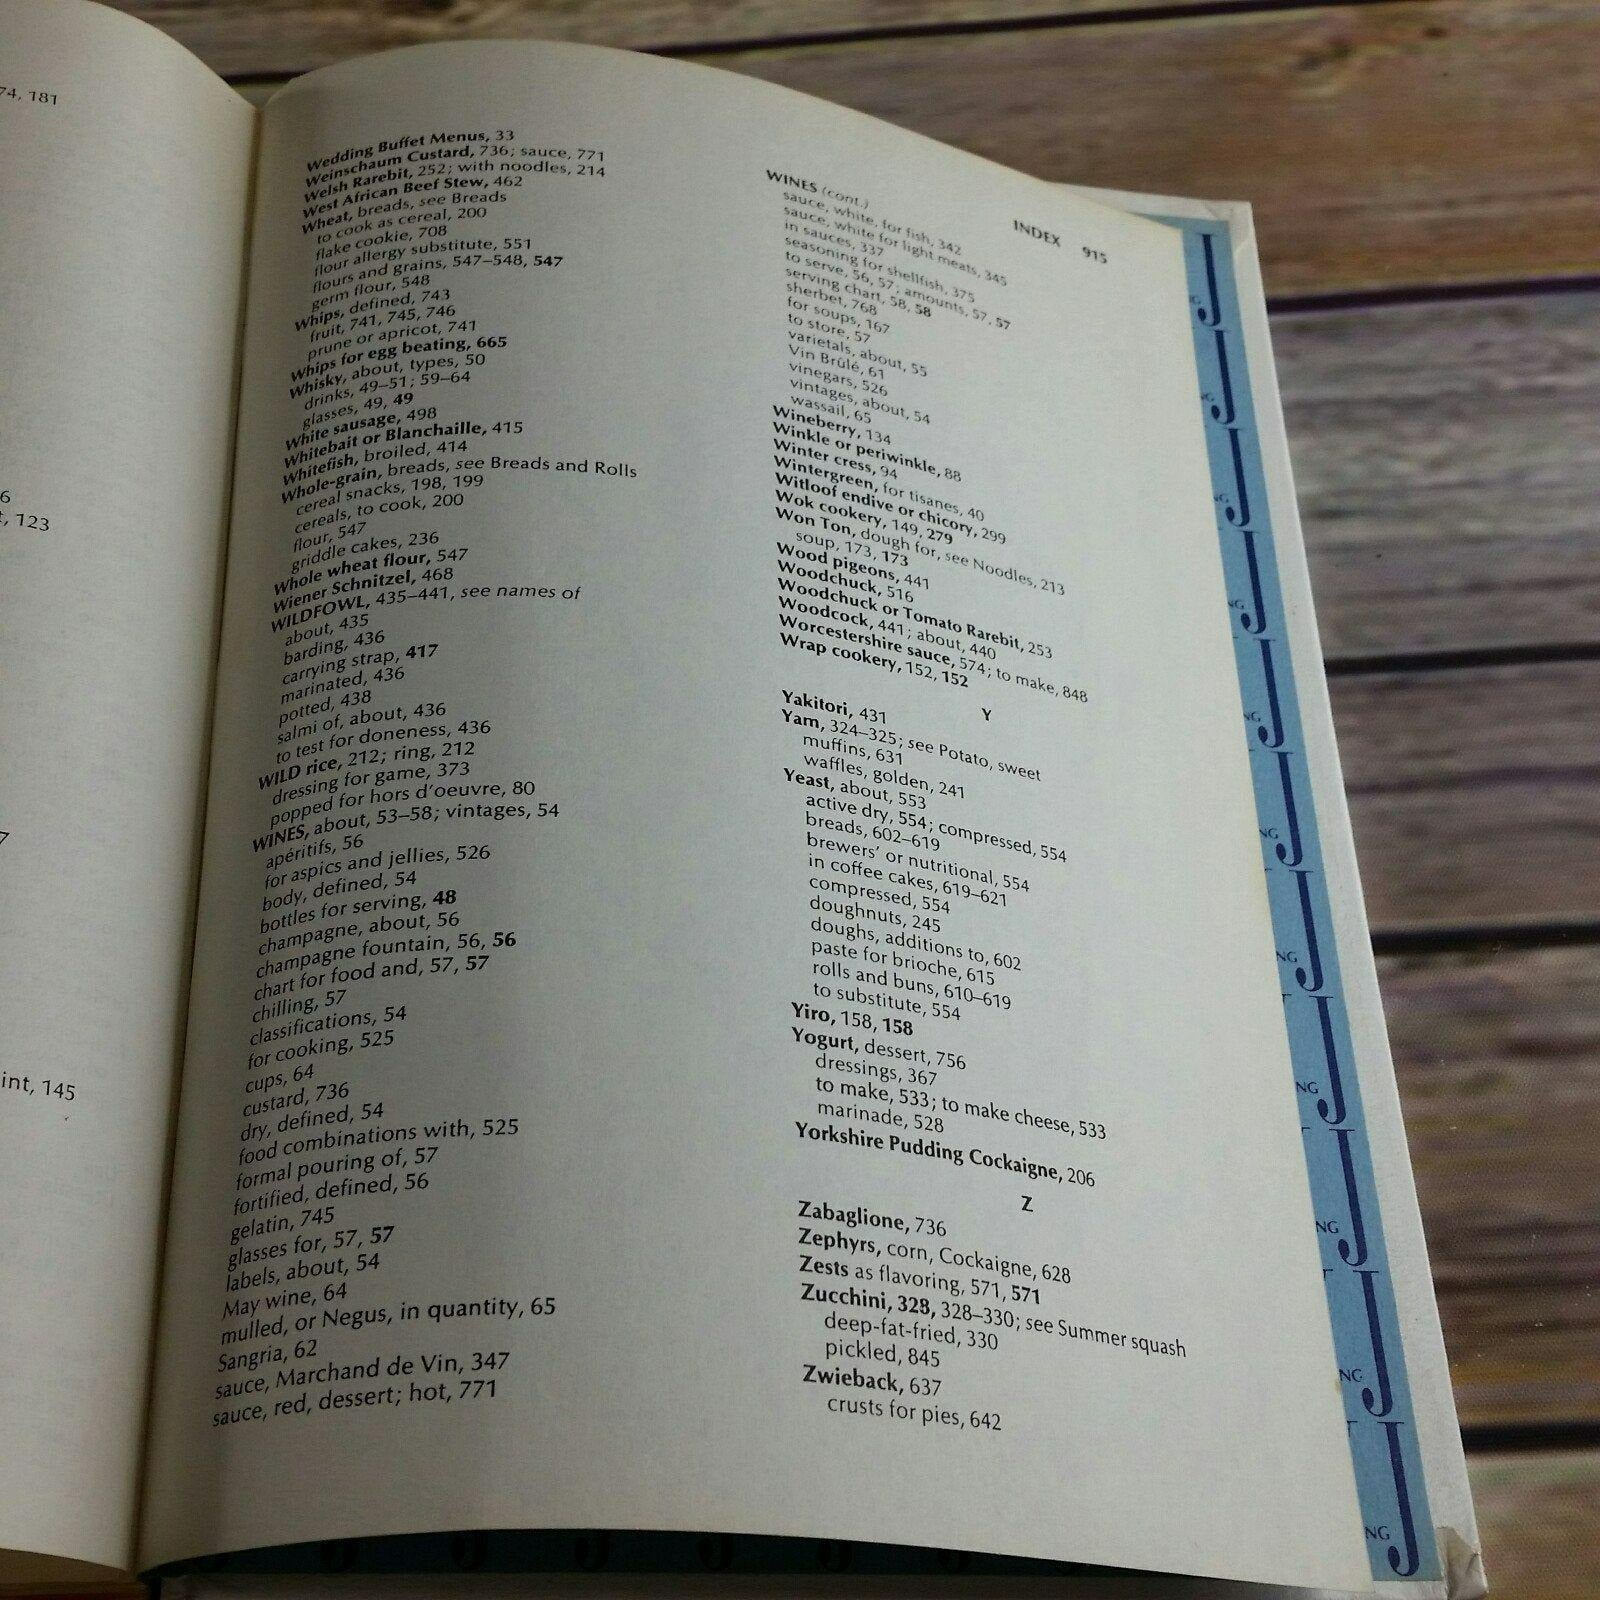 74, 181
6
t, 123
7
int, 145
INDEX 915
Wedding Buffet Menus, 33
Weinschaum Custard, 736; sauce, 771
Welsh Rarebit, 252; with noodles, 214
West African Beef Stew, 462
Wheat, breads, see Breads
to cook as cereal, 200
flake cookie, 708
flour allergy substitute, 551
flours and grains, 547–548, 547
germ flour, 548
Whips, defined, 743
fruit, 741, 745, 746
prune or apricot, 741
Whips for egg beating, 665
Whisky, about, types, 50
drinks, 49–51; 59–64
glasses, 49, 49
White sausage, 498
Whitebait or Blanchaille, 415
Whitefish, broiled, 414
Whole-grain, breads, see Breads and Rolls
cereal snacks, 198, 199
cereals, to cook, 200
flour, 547
griddle cakes, 236
Whole wheat flour, 547
Wiener Schnitzel, 468
WILDFOWL, 435–441, see names of
about, 435
barding, 436
carrying strap, 417
marinated, 436
potted, 438
salmi of, about, 436
to test for doneness, 436
WILD rice, 212; ring, 212
dressing for game, 373
popped for hors d'oeuvre, 80
WINES, about, 53–58; vintages, 54
apéritifs, 56
for aspics and jellies, 526
body, defined, 54
bottles for serving, 48
champagne, about, 56
champagne fountain, 56, 56
chart for food and, 57, 57
chilling, 57
classifications, 54
for cooking, 525
cups, 64
custard, 736
dry, defined, 54
food combinations with, 525
formal pouring of, 57
fortified, defined, 56
gelatin, 745
glasses for, 57, 57
labels, about, 54
May wine, 64
mulled, or Negus, in quantity, 65
Sangria, 62
sauce, Marchand de Vin, 347
sauce, red, dessert; hot, 771
WINES (cont.)
sauce, white, for fish, 342
sauce, white for light meats, 345
in sauces, 337
seasoning for shellfish, 375
to serve, 56, 57; amounts, 57, 57
serving chart, 58, 58
sherbet, 768
for soups, 167
to store, 57
varietals, about, 55
Vin Brûlé, 61
vinegars, 526
vintages, about, 54
wassail, 65
Wineberry, 134
Winkle or periwinkle, 88
Winter cress, 94
Wintergreen, for tisanes, 40
Witloof endive or chicory, 299
Wok cookery, 149, 279
Won Ton, dough for, see Noodles, 213
soup, 173, 173
Wood pigeons, 441
Woodchuck, 516
Woodchuck or Tomato Rarebit, 253
Woodcock, 441; about, 440
Worcestershire sauce, 574; to make, 848
Wrap cookery, 152, 152
Y
Yakitori, 431
Yam, 324–325; see Potato, sweet
muffins, 631
waffles, golden, 241
Yeast, about, 553
active dry, 554; compressed, 554
breads, 602–619
brewers' or nutritional, 554
in coffee cakes, 619–621
compressed, 554
doughnuts, 245
doughs, additions to, 602
paste for brioche, 615
rolls and buns, 610–619
to substitute, 554
Yiro, 158, 158
Yogurt, dessert, 756
dressings, 367
to make, 533; to make cheese, 533
marinade, 528
Yorkshire Pudding Cockaigne, 206
Z
Zabaglione, 736
Zephyrs, corn, Cockaigne, 628
Zests as flavoring, 571, 571
Zucchini, 328, 328–330; see Summer squash
deep-fat-fried, 330
pickled, 845
Zwieback, 637
crusts for pies, 642
G J
NG J
NG J
NG J
NG J
NG J
NG J
NG J
NG J
NG J
NG J